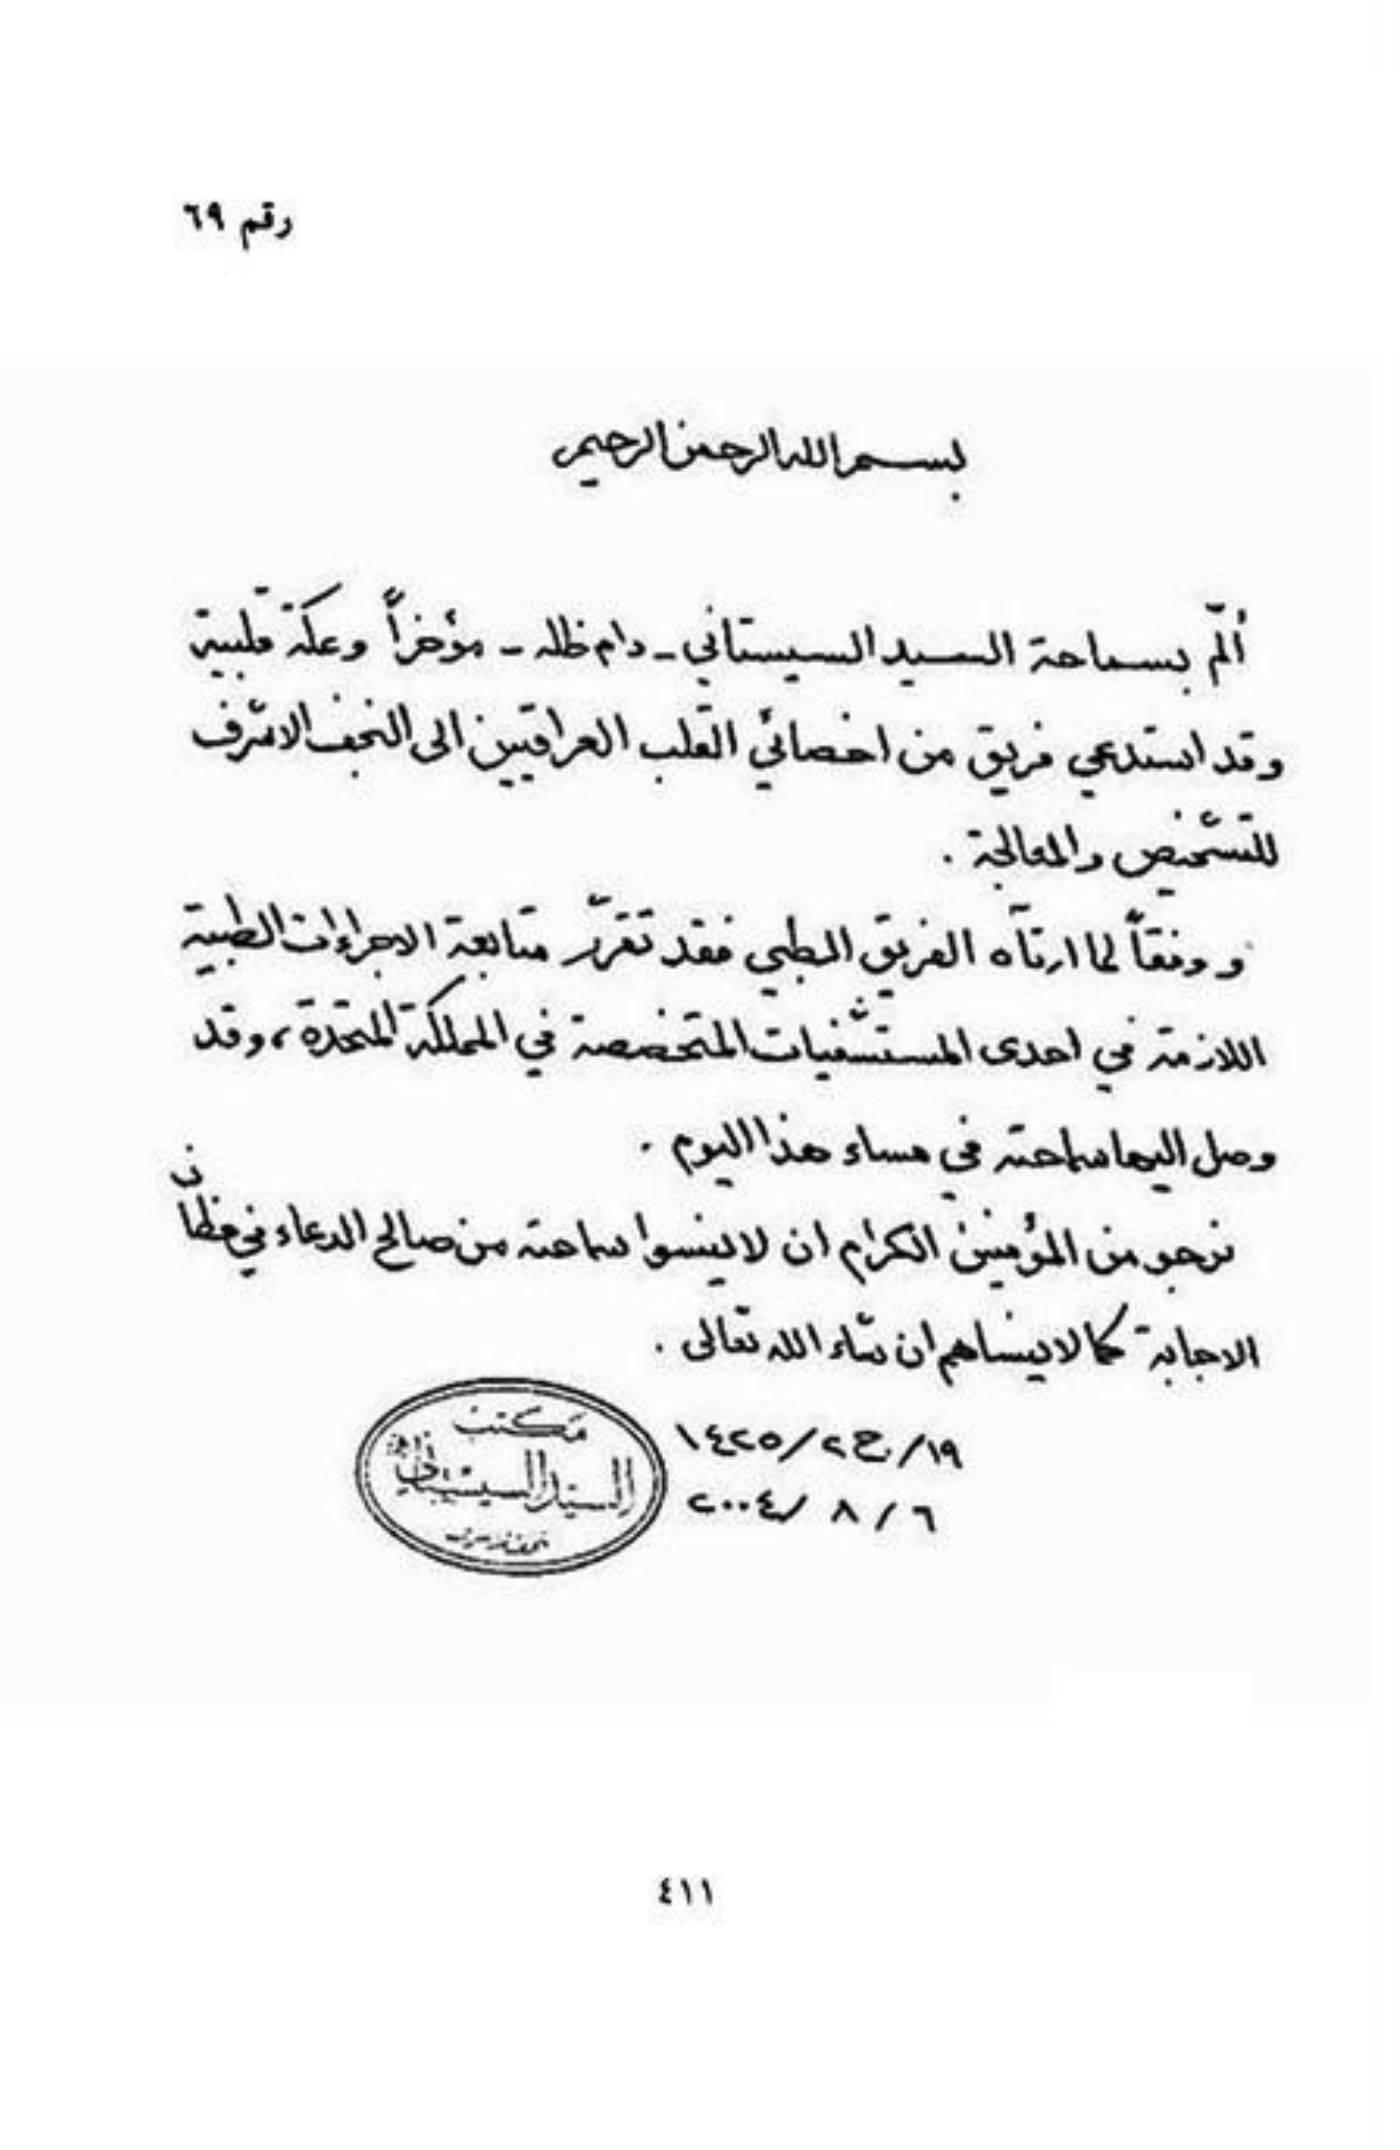 رقم ٦٩
بسم الله الرحمن الرحيم
ألمّ بسماحة السيد السيستاني - دام ظله - مؤخراً وعكة قلبية
وقد استدعي فريق من اخصائي القلب العراقيين الى النجف الاشرف
للتشخيص والمعالجة .
ووفقاً لما ارتآه الفريق الطبي فقد تقرّر متابعة الاجراءات الطبية
اللازمة في احدى المستشفيات المتخصصة في المملكة المتحدة ، وقد
وصل اليها سماحته في مساء هذا اليوم .
نرجو من المؤمنين الكرام ان لا ينسوا سماحته من صالح الدعاء في مظان
الاجابة كما لا ينساهم ان شاء الله تعالى .
١٩/ ج٢/ ١٤٢٥
٦ / ٨ / ٢٠٠٤
مكتب
السيد السيستاني
٤١١